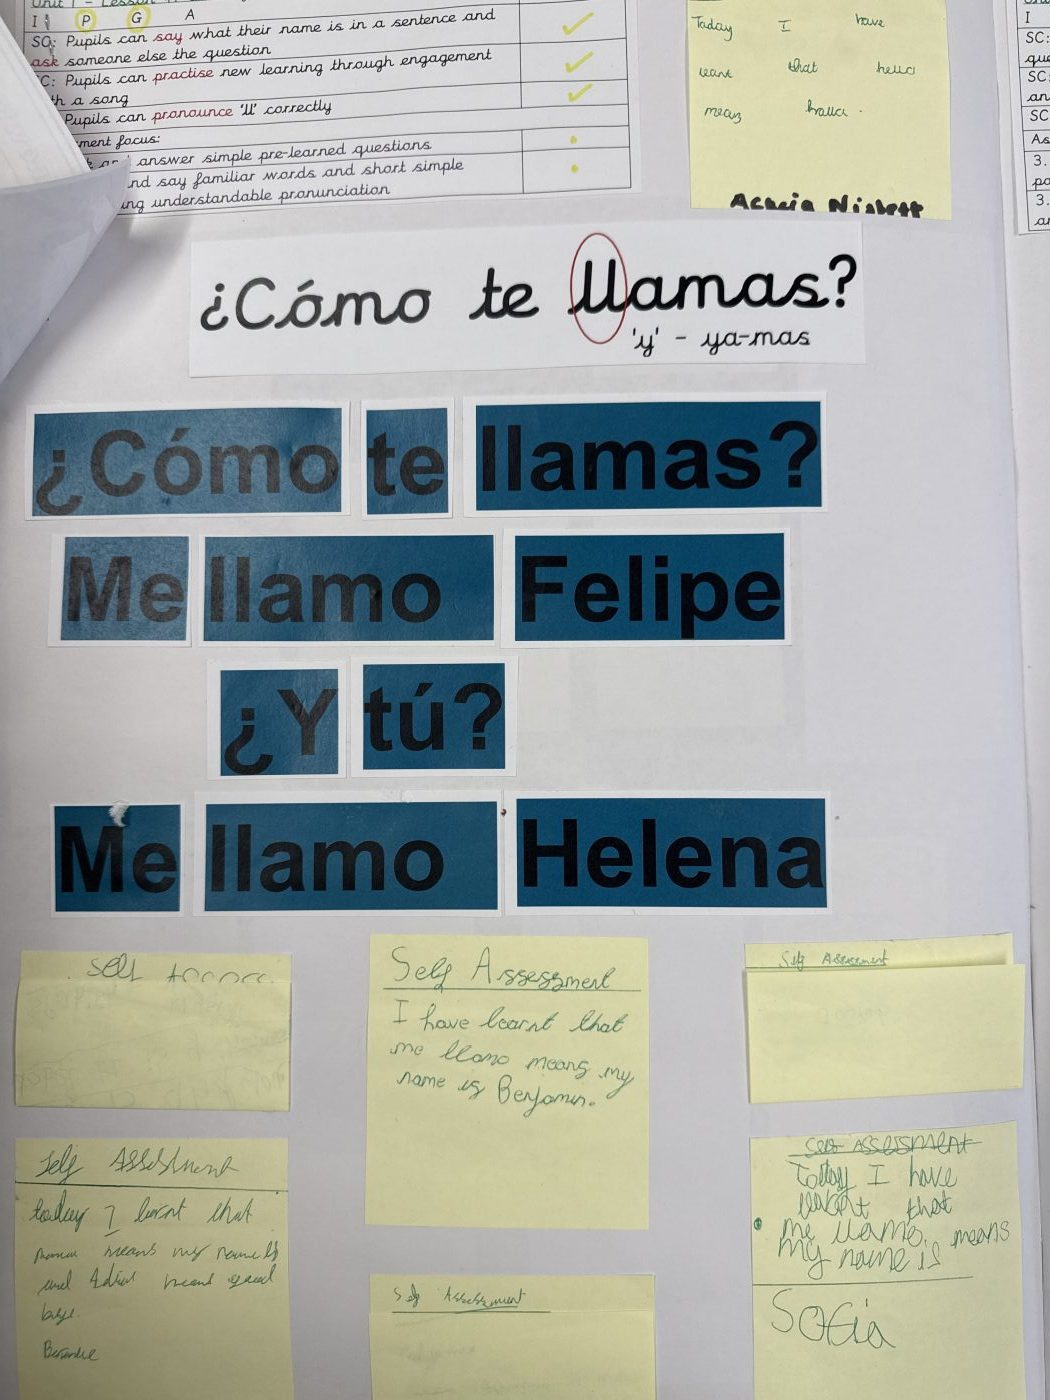 I P G A
SO: Pupils can say what their name is in a sentence and
ask someone else the question
C: Pupils can practise new learning through engagement
th a song
Pupils can pronounce 'll' correctly
ment focus:
and answer simple pre-learned questions
nd say familiar words and short simple
ing understandable pronunciation
Today I have
that hello
means
I
SC:
que
SC:
an
SC
As
3.
po
3.
¿Cómo te llamas?
'y' - ya-mas
¿Cómo te llamas?
Me llamo Felipe
¿Y tú?
Me llamo Helena
Self
Self Assessment
I have learnt that
me llamo means my
name is Benjamin.
Self Assessment
Self Assessment
today I lernt that
means my name is
and means good
Self Assessment
Self Assessment
Today I have
that
me llamo means
my name is
Sofia